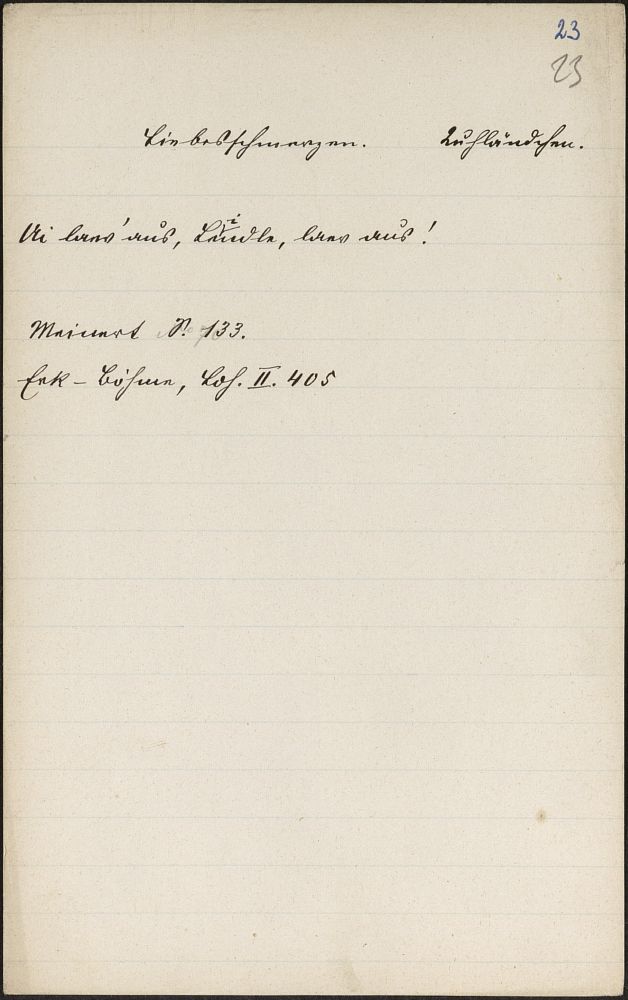 23
23
Liebesschmerzen. Kuhländchen.
Ai laev' aus, Lindle, laev aus!
Meinert S. 133.
Erk-Böhme, Loh. II. 405